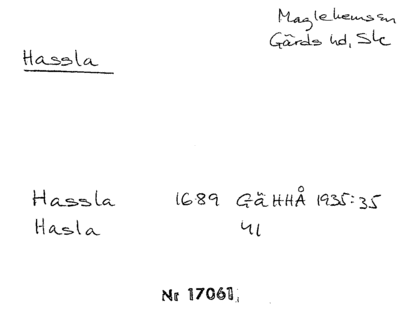 Maglehems sn
Gärds hd, Sk
Hassla
Hassla 1689 GäHHÅ 1935:35
Hasla 41
Nr 17061